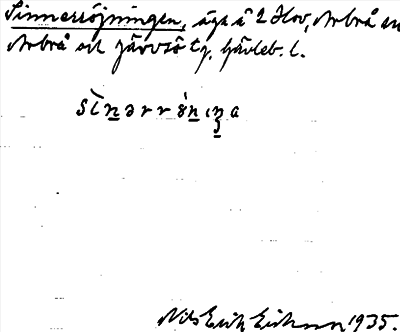 Sinnerröjningen, äga å 2 Hov, Arbrå sn
Arbrå och Järvsö tg. Gävleb. l.
sīn̲ərrön̲ıŋ̲a
Nils Erik Eriksson 1935.